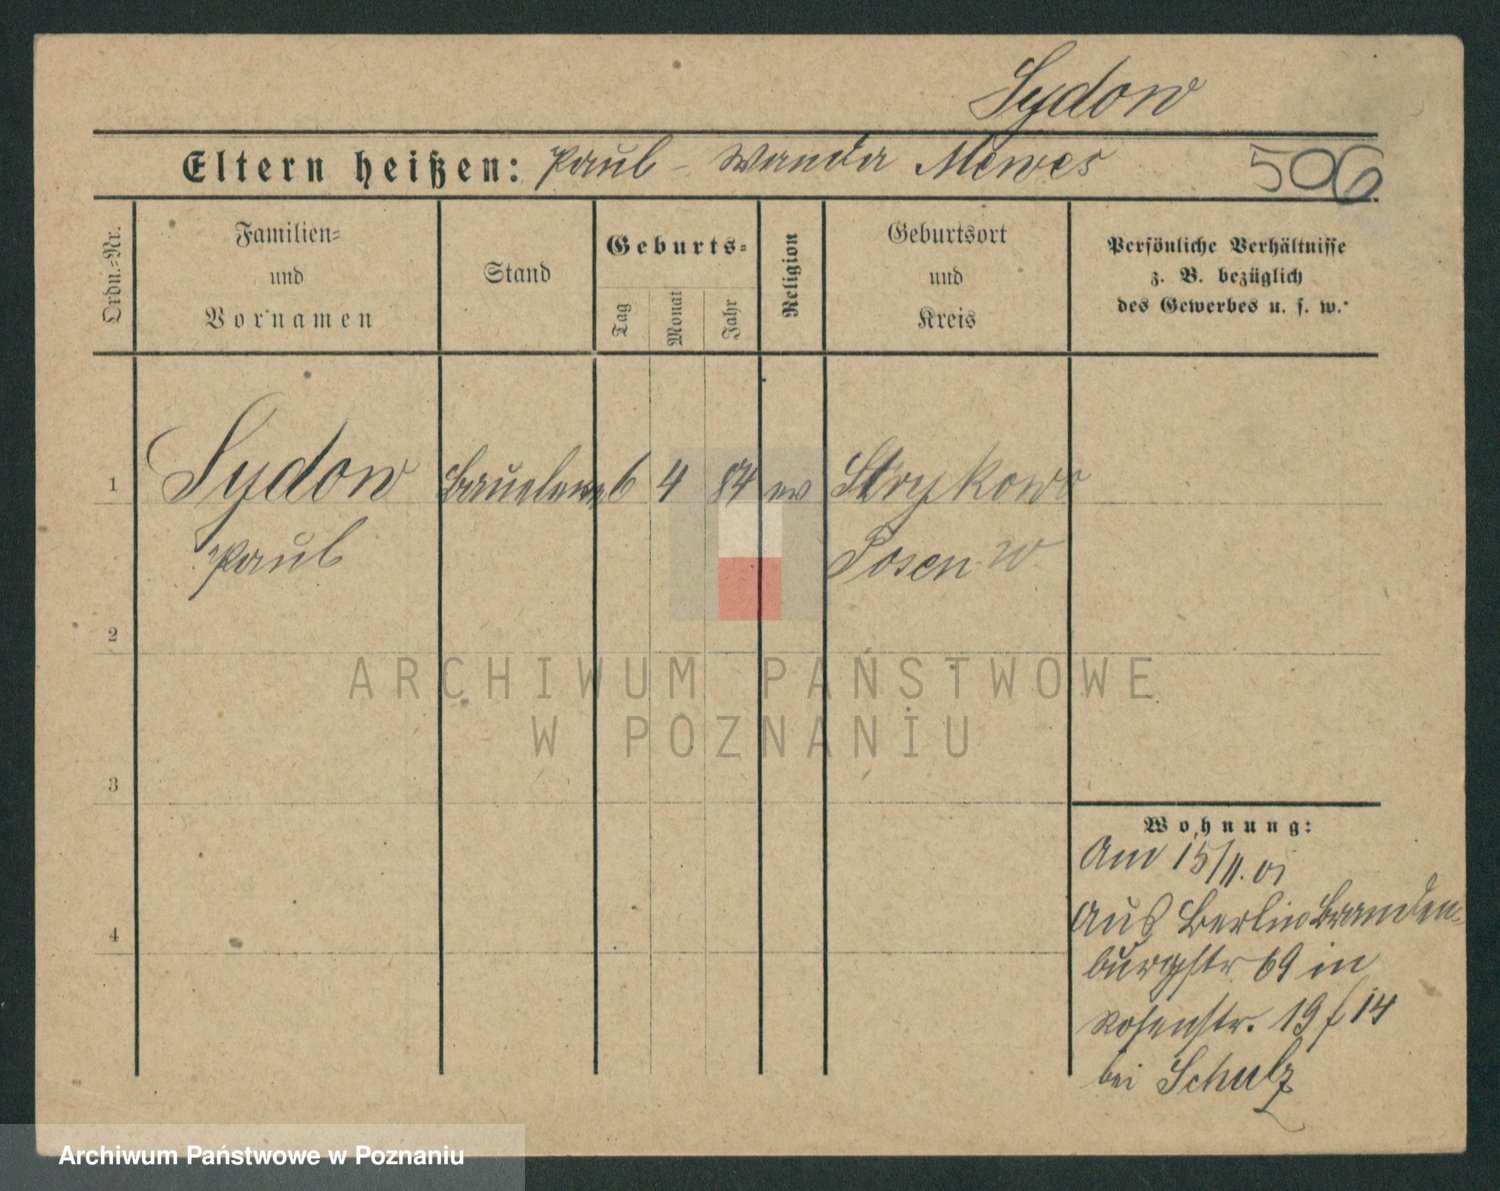 Sydow
Eltern heißen: Paul - Wanda Mewes
506
Ordn.=Nr.
Familien=
und
Vornamen
Stand
Geburts=
Tag
Monat
Jahr
Religion
Geburtsort
und
Kreis
Persönliche Verhältnisse
z. B. bezüglich
des Gewerbes u. s. w.
1
Sydow
6 4 84 ev
Strykowo
Paul
Posen W
2
ARCHIWUM PAŃSTWOWE
W POZNANIU
3
Wohnung:
Am 15/11.01
aus Berlin Branden-
burgstr 69 in
Rosenstr. 19 f 14
bei Schulz
4
Archiwum Państwowe w Poznaniu